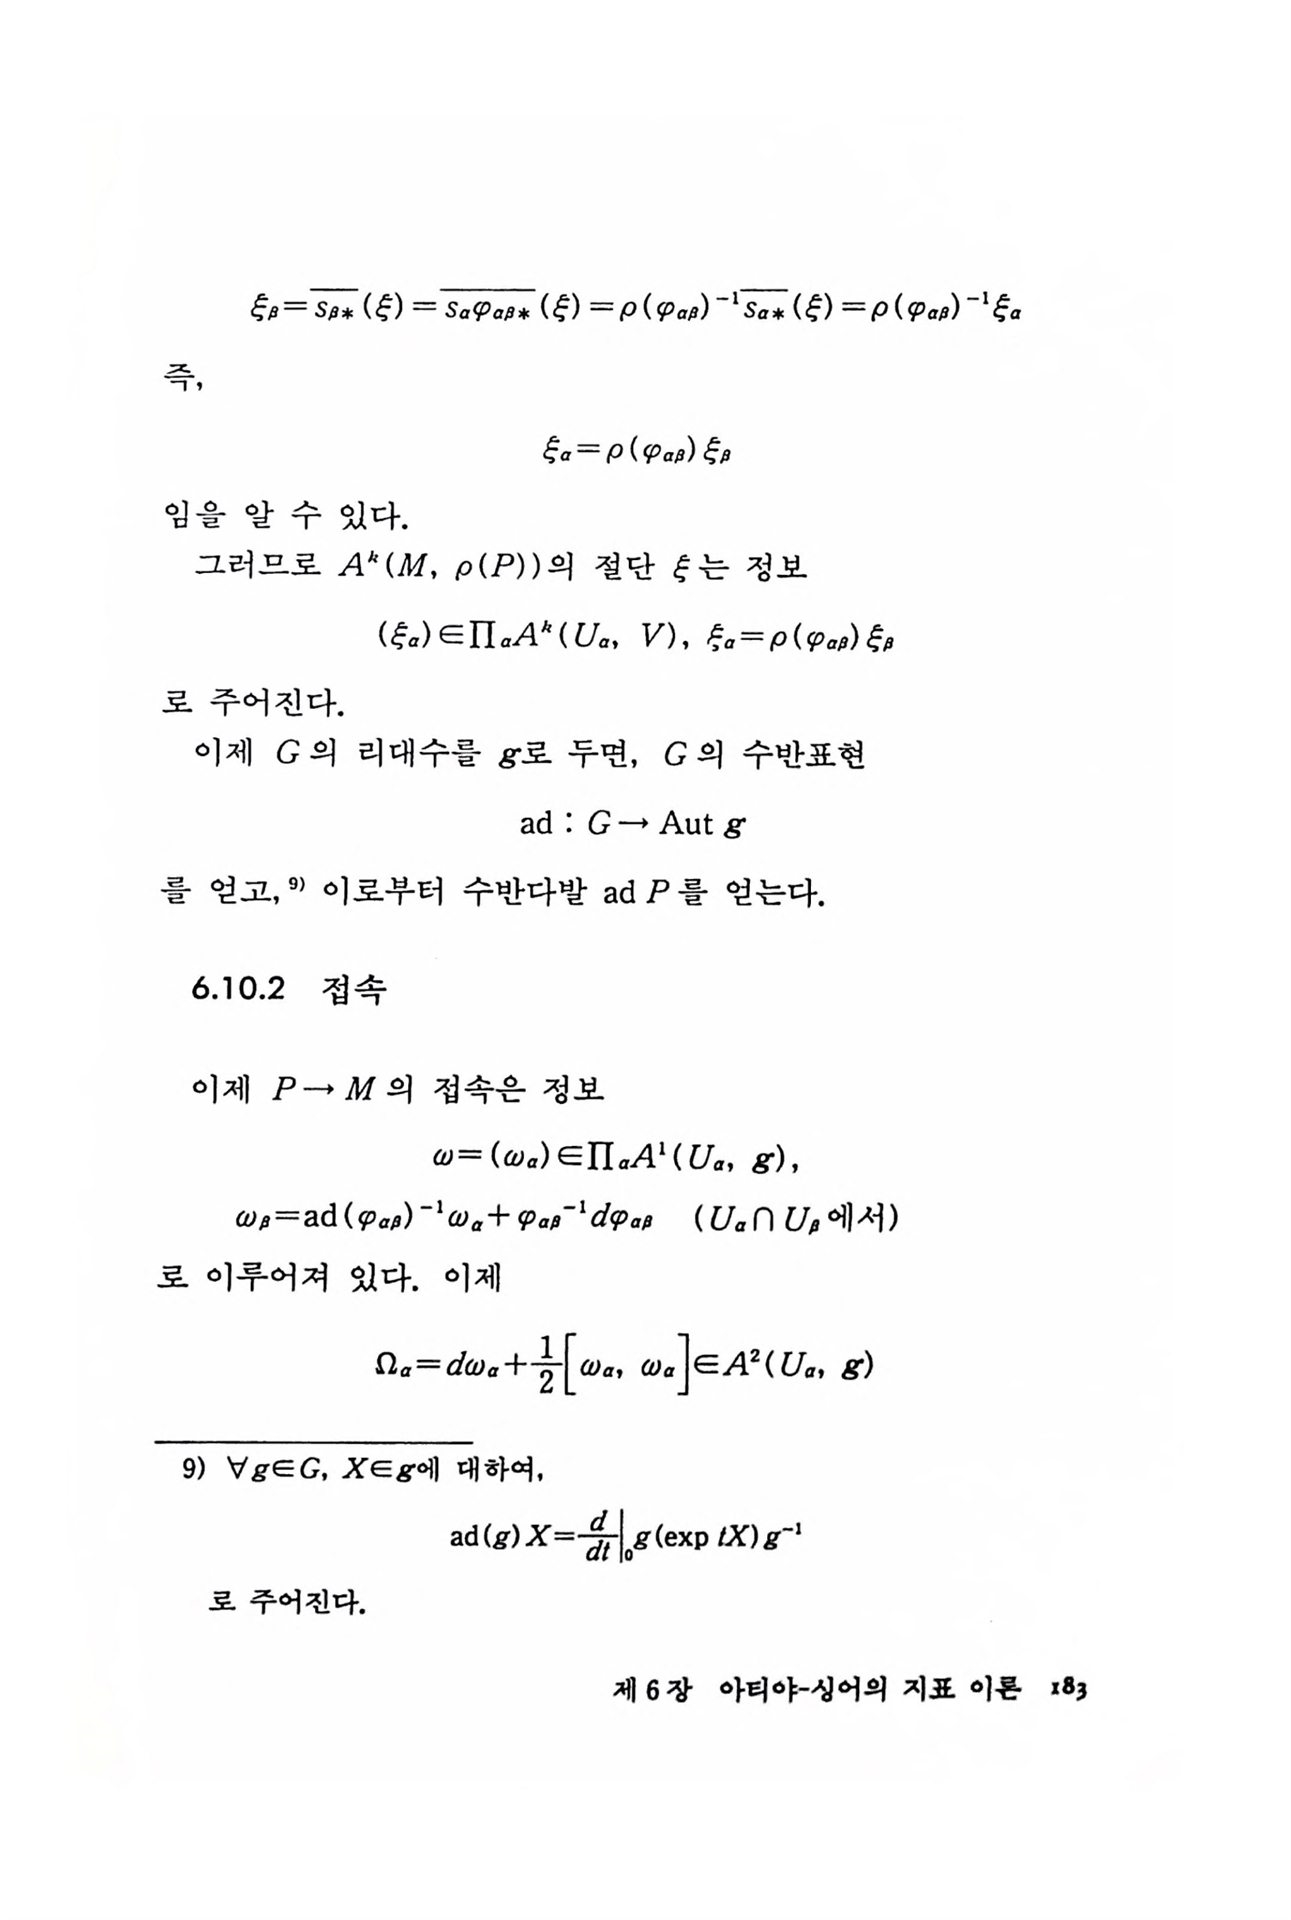 ξ_β = \overline{s_{β*}}(ξ) = \overline{s_αφ_{αβ*}}(ξ) = ρ(φ_{αβ})^{-1}\overline{s_{α*}}(ξ) = ρ(φ_{αβ})^{-1}ξ_α
즉,
ξ_α = ρ(φ_{αβ})ξ_β
임을 알 수 있다.
그러므로 A^k(M, ρ(P))의 절단 ξ는 정보
(ξ_α)∈∏_αA^k(U_α, V), ξ_α = ρ(φ_{αβ})ξ_β
로 주어진다.
이제 G의 리대수를 g로 두면, G의 수반표현
ad : G → Aut g
를 얻고,^{9)} 이로부터 수반다발 ad P를 얻는다.
6.10.2 접속
이제 P → M의 접속은 정보
ω = (ω_α)∈∏_αA^1(U_α, g),
ω_β = ad(φ_{αβ})^{-1}ω_α + φ_{αβ}^{-1}dφ_{αβ} (U_α∩U_β에서)
로 이루어져 있다. 이제
Ω_α = dω_α + \frac{1}{2}[ω_α, ω_α]∈A^2(U_α, g)
9) ∀g∈G, X∈g에 대하여,
ad(g)X = \frac{d}{dt}|_0 g(exp tX)g^{-1}
로 주어진다.
제 6 장 아티야-싱어의 지표 이론 183